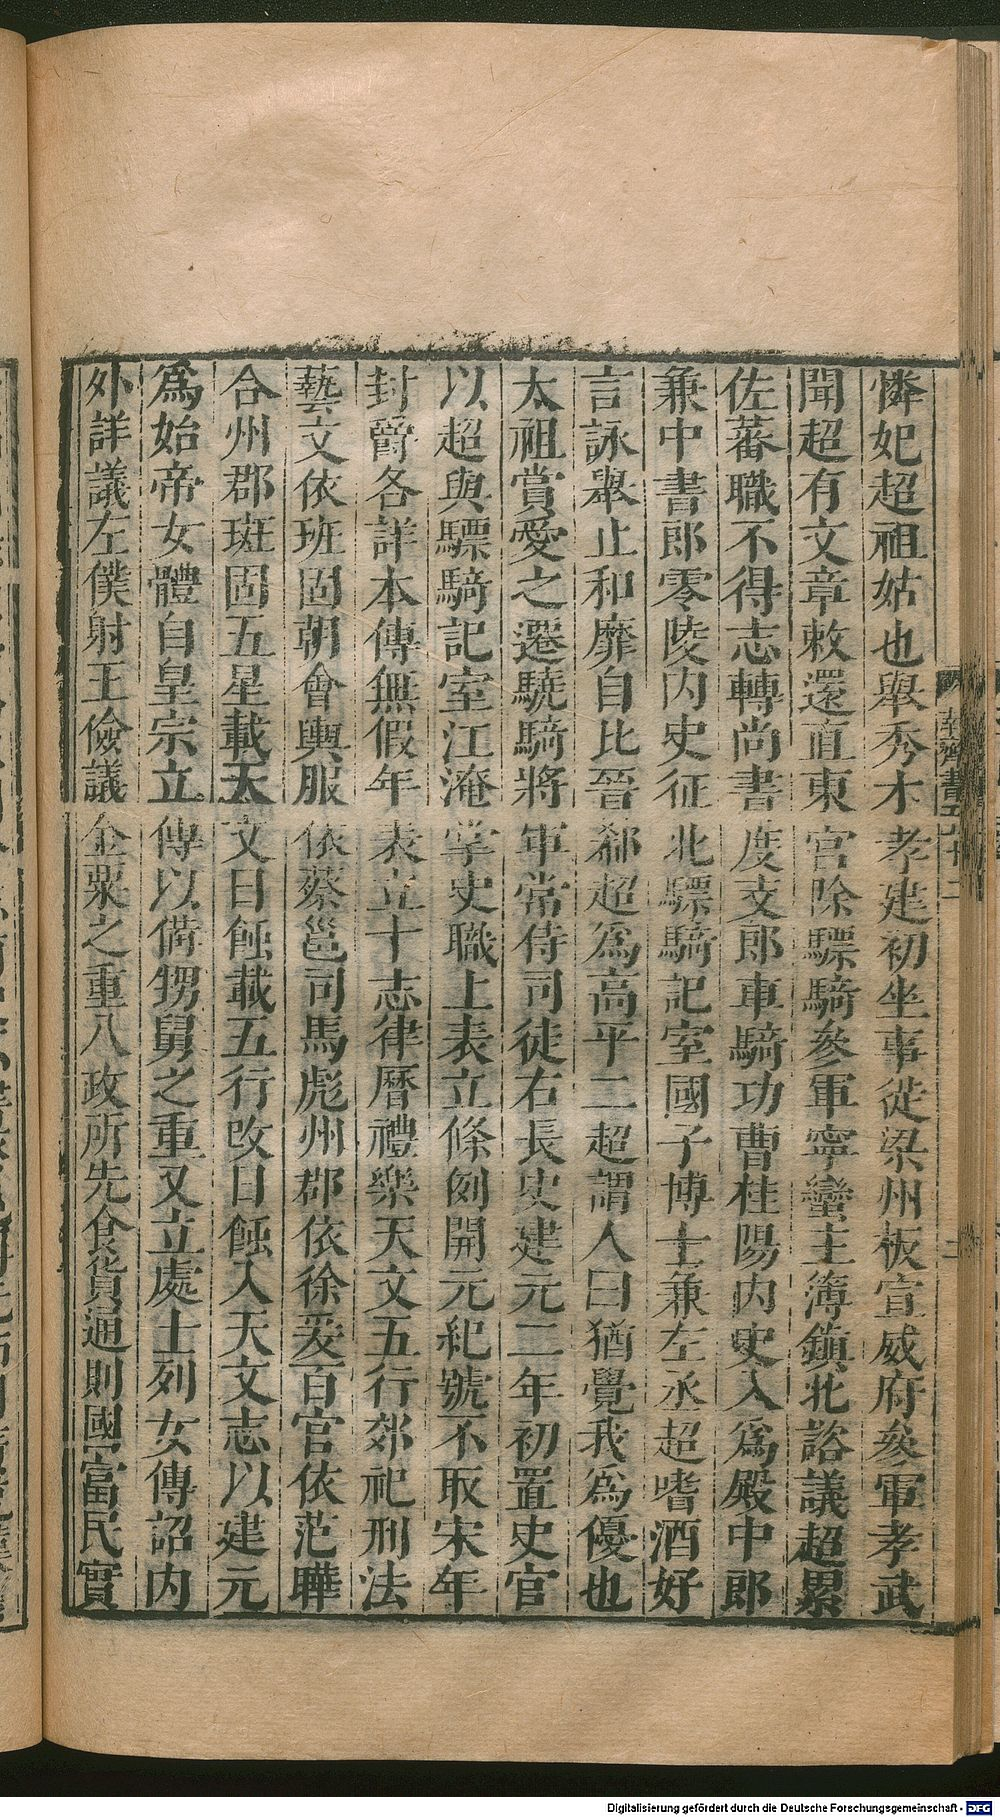 憐妃超祖姑也舉秀才孝建初坐事徙梁州板宣威府參軍孝武
聞超有文章敕還直東宮除驃騎參軍寧蠻主簿鎭北諮議超累
佐蕃職不得志轉尚書度支郎車騎功曹桂陽內史入爲殿中郎
兼中書郎零陵內史征北驃騎記室國子博士兼左丞超嗜酒好
言詠舉止和靡自比晉郗超爲高平二超謂人曰猶覺我爲優也
太祖賞愛之遷驍騎將軍常侍司徒右長史建元二年初置史官
以超與驃騎記室江淹掌史職上表立條例開元紀號不取宋年
封爵各詳本傳無假年表立十志律曆禮樂天文五行郊祀刑法
藝文依班固朝會輿服依蔡邕司馬彪州郡依徐爰百官依范曄
合州郡班固五星載天文日蝕載五行改日蝕入天文志以建元
爲始帝女體自皇宗立傳以備甥舅之重又立處士列女傳詔內
外詳議左僕射王儉議金粟之重八政所先食貨通則國富民實
南齊書五十二
二
Digitalisierung gefördert durch die Deutsche Forschungsgemeinschaft - DFG